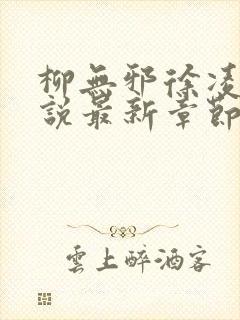 柳無邪徐凌
說最新章節
雲上醉酒客